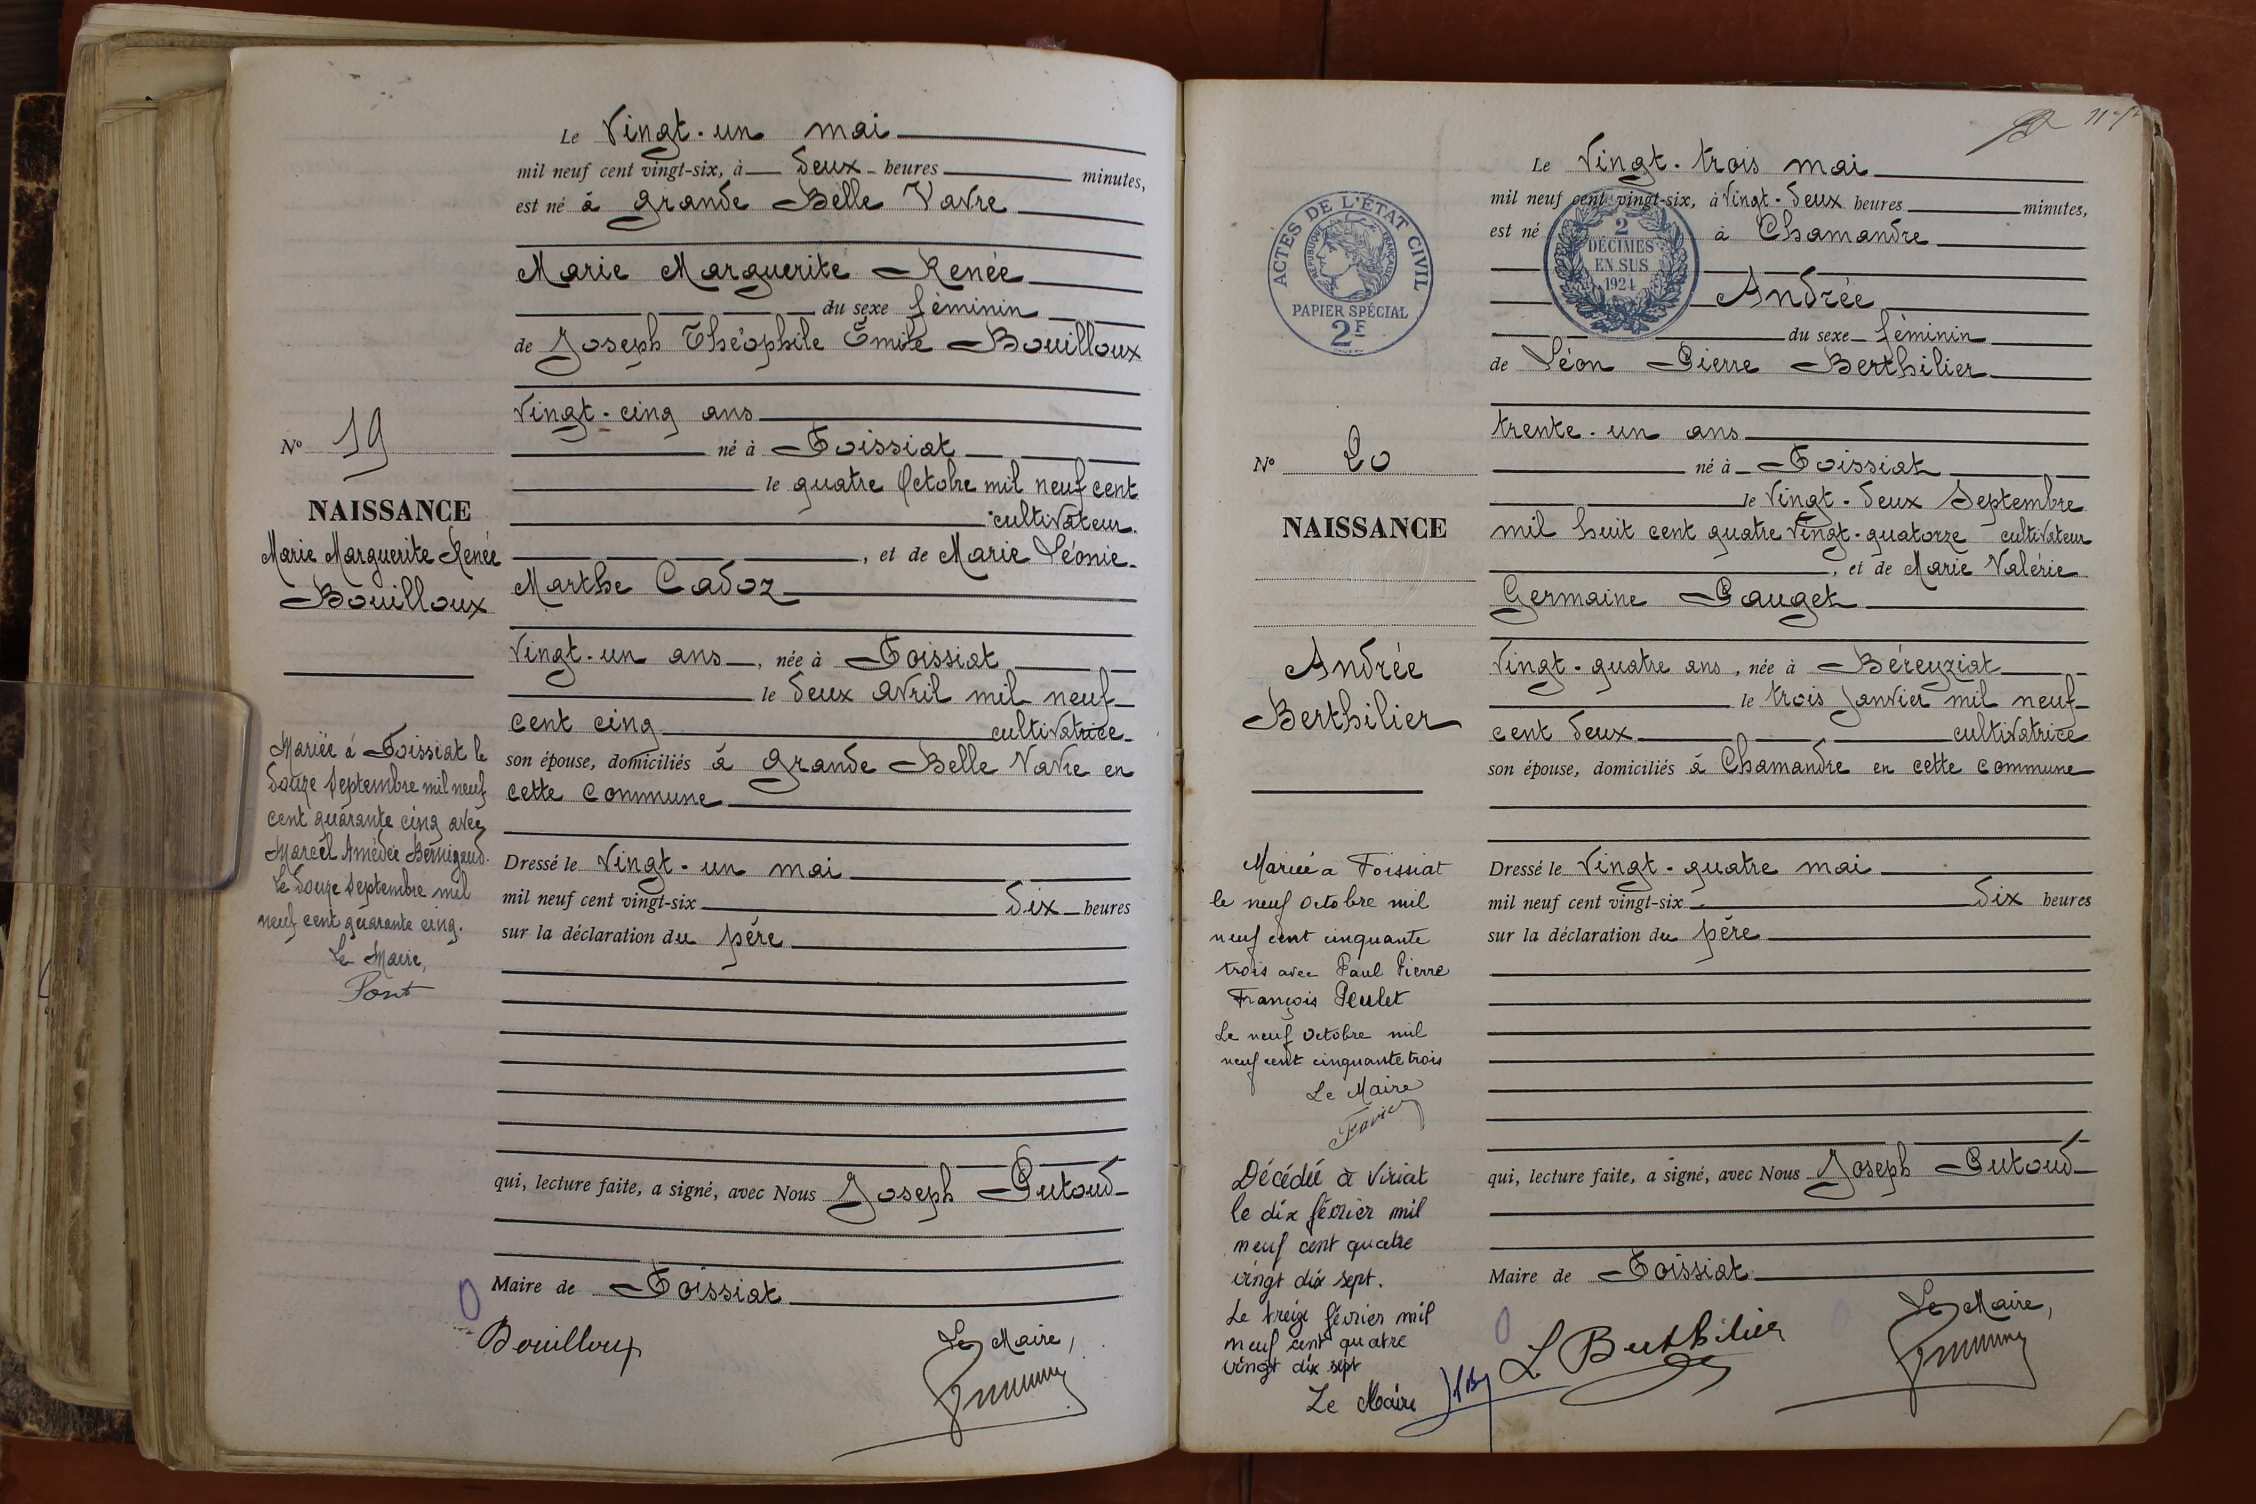 Le Vingt-un mai
mil neuf cent vingt-six, à deux heures minutes,
est né à Grande Belle Vavre
Marie Marguerite Renée
du sexe féminin
de Joseph Théophile Emile Bouilloux
Vingt-cinq ans
né à Foissiat
le quatre Octobre mil neuf cent
cultivateur.
, et de Marie Léonie
Marthe Cadoz
Vingt-un ans, née à Foissiat
le deux avril mil neuf
cent cinq cultivatrice
son épouse, domiciliés à Grande Belle Vavre en
cette commune
Dressé le Vingt-un mai
mil neuf cent vingt-six dix heures
sur la déclaration du père
qui, lecture faite, a signé, avec Nous Joseph Putoud
Maire de Foissiat
Bouilloux
Le Maire,
No 19
NAISSANCE
Marie Marguerite Renée
Bouilloux
Mariée à Foissiat le
douze Septembre mil neuf
cent quarante cinq avec
Marcel Amédée Bernigaud.
Le douze Septembre mil
neuf cent quarante cinq.
Le Maire,
Pont
Le Vingt-trois mai
mil neuf cent vingt-six, à Vingt-deux heures minutes,
est né à Chamandre
Andrée
du sexe féminin
de Léon Pierre Berthilier
trente-un ans
né à Foissiat
le Vingt-deux Septembre
mil huit cent quatre Vingt-quatorze cultivateur
, et de Marie Valérie
Germaine Pauget
Vingt-quatre ans, née à Béreyziat
le trois Janvier mil neuf
cent deux cultivatrice
son épouse, domiciliés à Chamandre en cette commune
Dressé le Vingt-quatre mai
mil neuf cent vingt-six dix heures
sur la déclaration du père
qui, lecture faite, a signé, avec Nous Joseph Putoud
Maire de Foissiat
L Berthilier
Le Maire,
ACTES DE L'ÉTAT CIVIL
RÉPUBLIQUE FRANÇAISE
PAPIER SPÉCIAL
2F
2
DÉCIMES
EN SUS
1924
No 20
NAISSANCE
Andrée
Berthilier
Mariée à Foissiat
le neuf Octobre mil
neuf cent cinquante
trois avec Paul Pierre
François Peulet
Le neuf Octobre mil
neuf cent cinquante trois
Le Maire
Décédée à Viriat
le dix février mil
neuf cent quatre
vingt dix sept.
Le treize février mil
neuf cent quatre
vingt dix sept
Le Maire